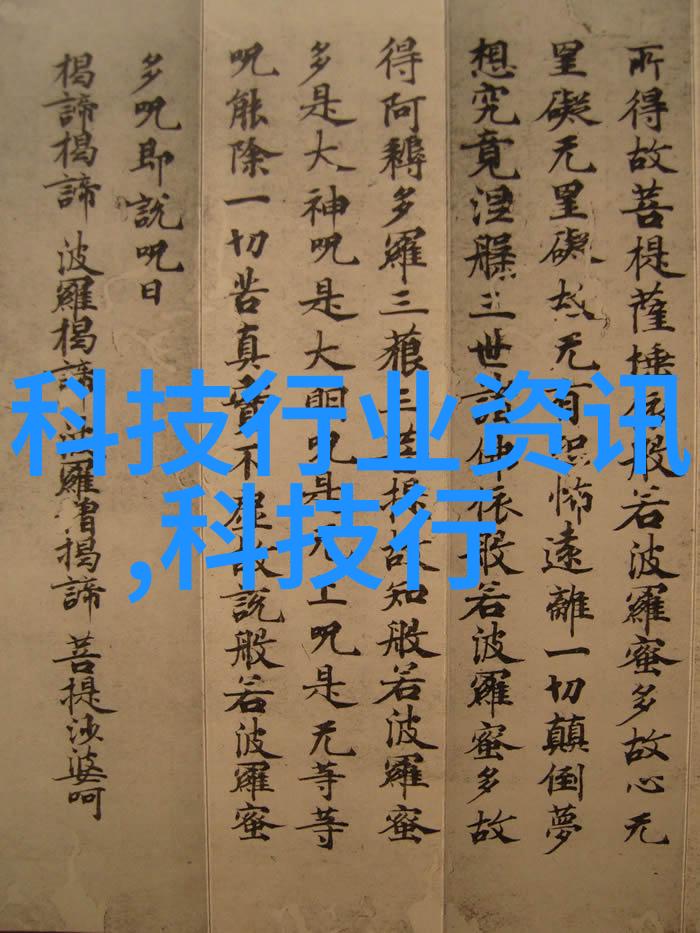 所得故菩提薩埵依般若波羅蜜多故心无
罣礙无罣礙故无有恐怖遠離一切顛倒夢
想究竟涅槃三世諸仏依般若波羅蜜多故
得阿耨多羅三藐三菩提故知般若波羅蜜
多是大神呪是大明呪是无上呪是无等等
呪能除一切苦真實不虛故說般若波羅蜜
多呪即說呪曰
揭諦揭諦 波羅揭諦 波羅僧揭諦 菩提沙婆呵
科技行业资讯
,科技行